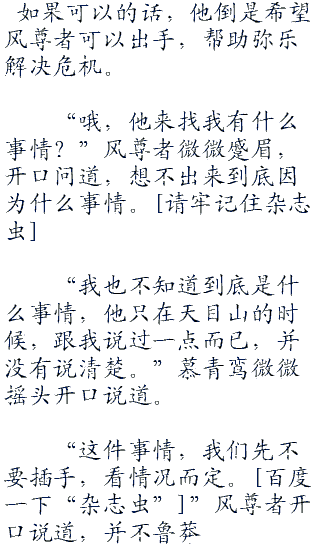 如果可以的话，他倒是希望
风尊者可以出手，帮助弥乐
解决危机。
“哦，他来找我有什么
事情？”风尊者微微蹙眉，
开口问道，想不出来到底因
为什么事情。[请牢记住杂志
虫]
“我也不知道到底是什
么事情，他只在天目山的时
候，跟我说过一点而已，并
没有说清楚。”慕青鸾微微
摇头开口说道。
“这件事情，我们先不
要插手，看情况而定。[百度
一下“杂志虫”]”风尊者开
口说道，并不鲁莽